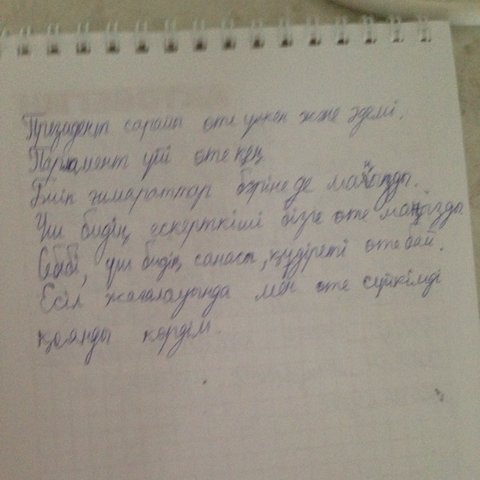 Президент сарайы өте үлкен және әдемі.
Парламент үйі өте кең
Биік ғимараттар бәріне де маңызды.
Үш бидің ескерткіші бізге өте маңызды
Себебі, үш бидің санасы, құдіреті өте бай.
Есіл жағалауында мен өте сүйкімді
қоянды көрдім.